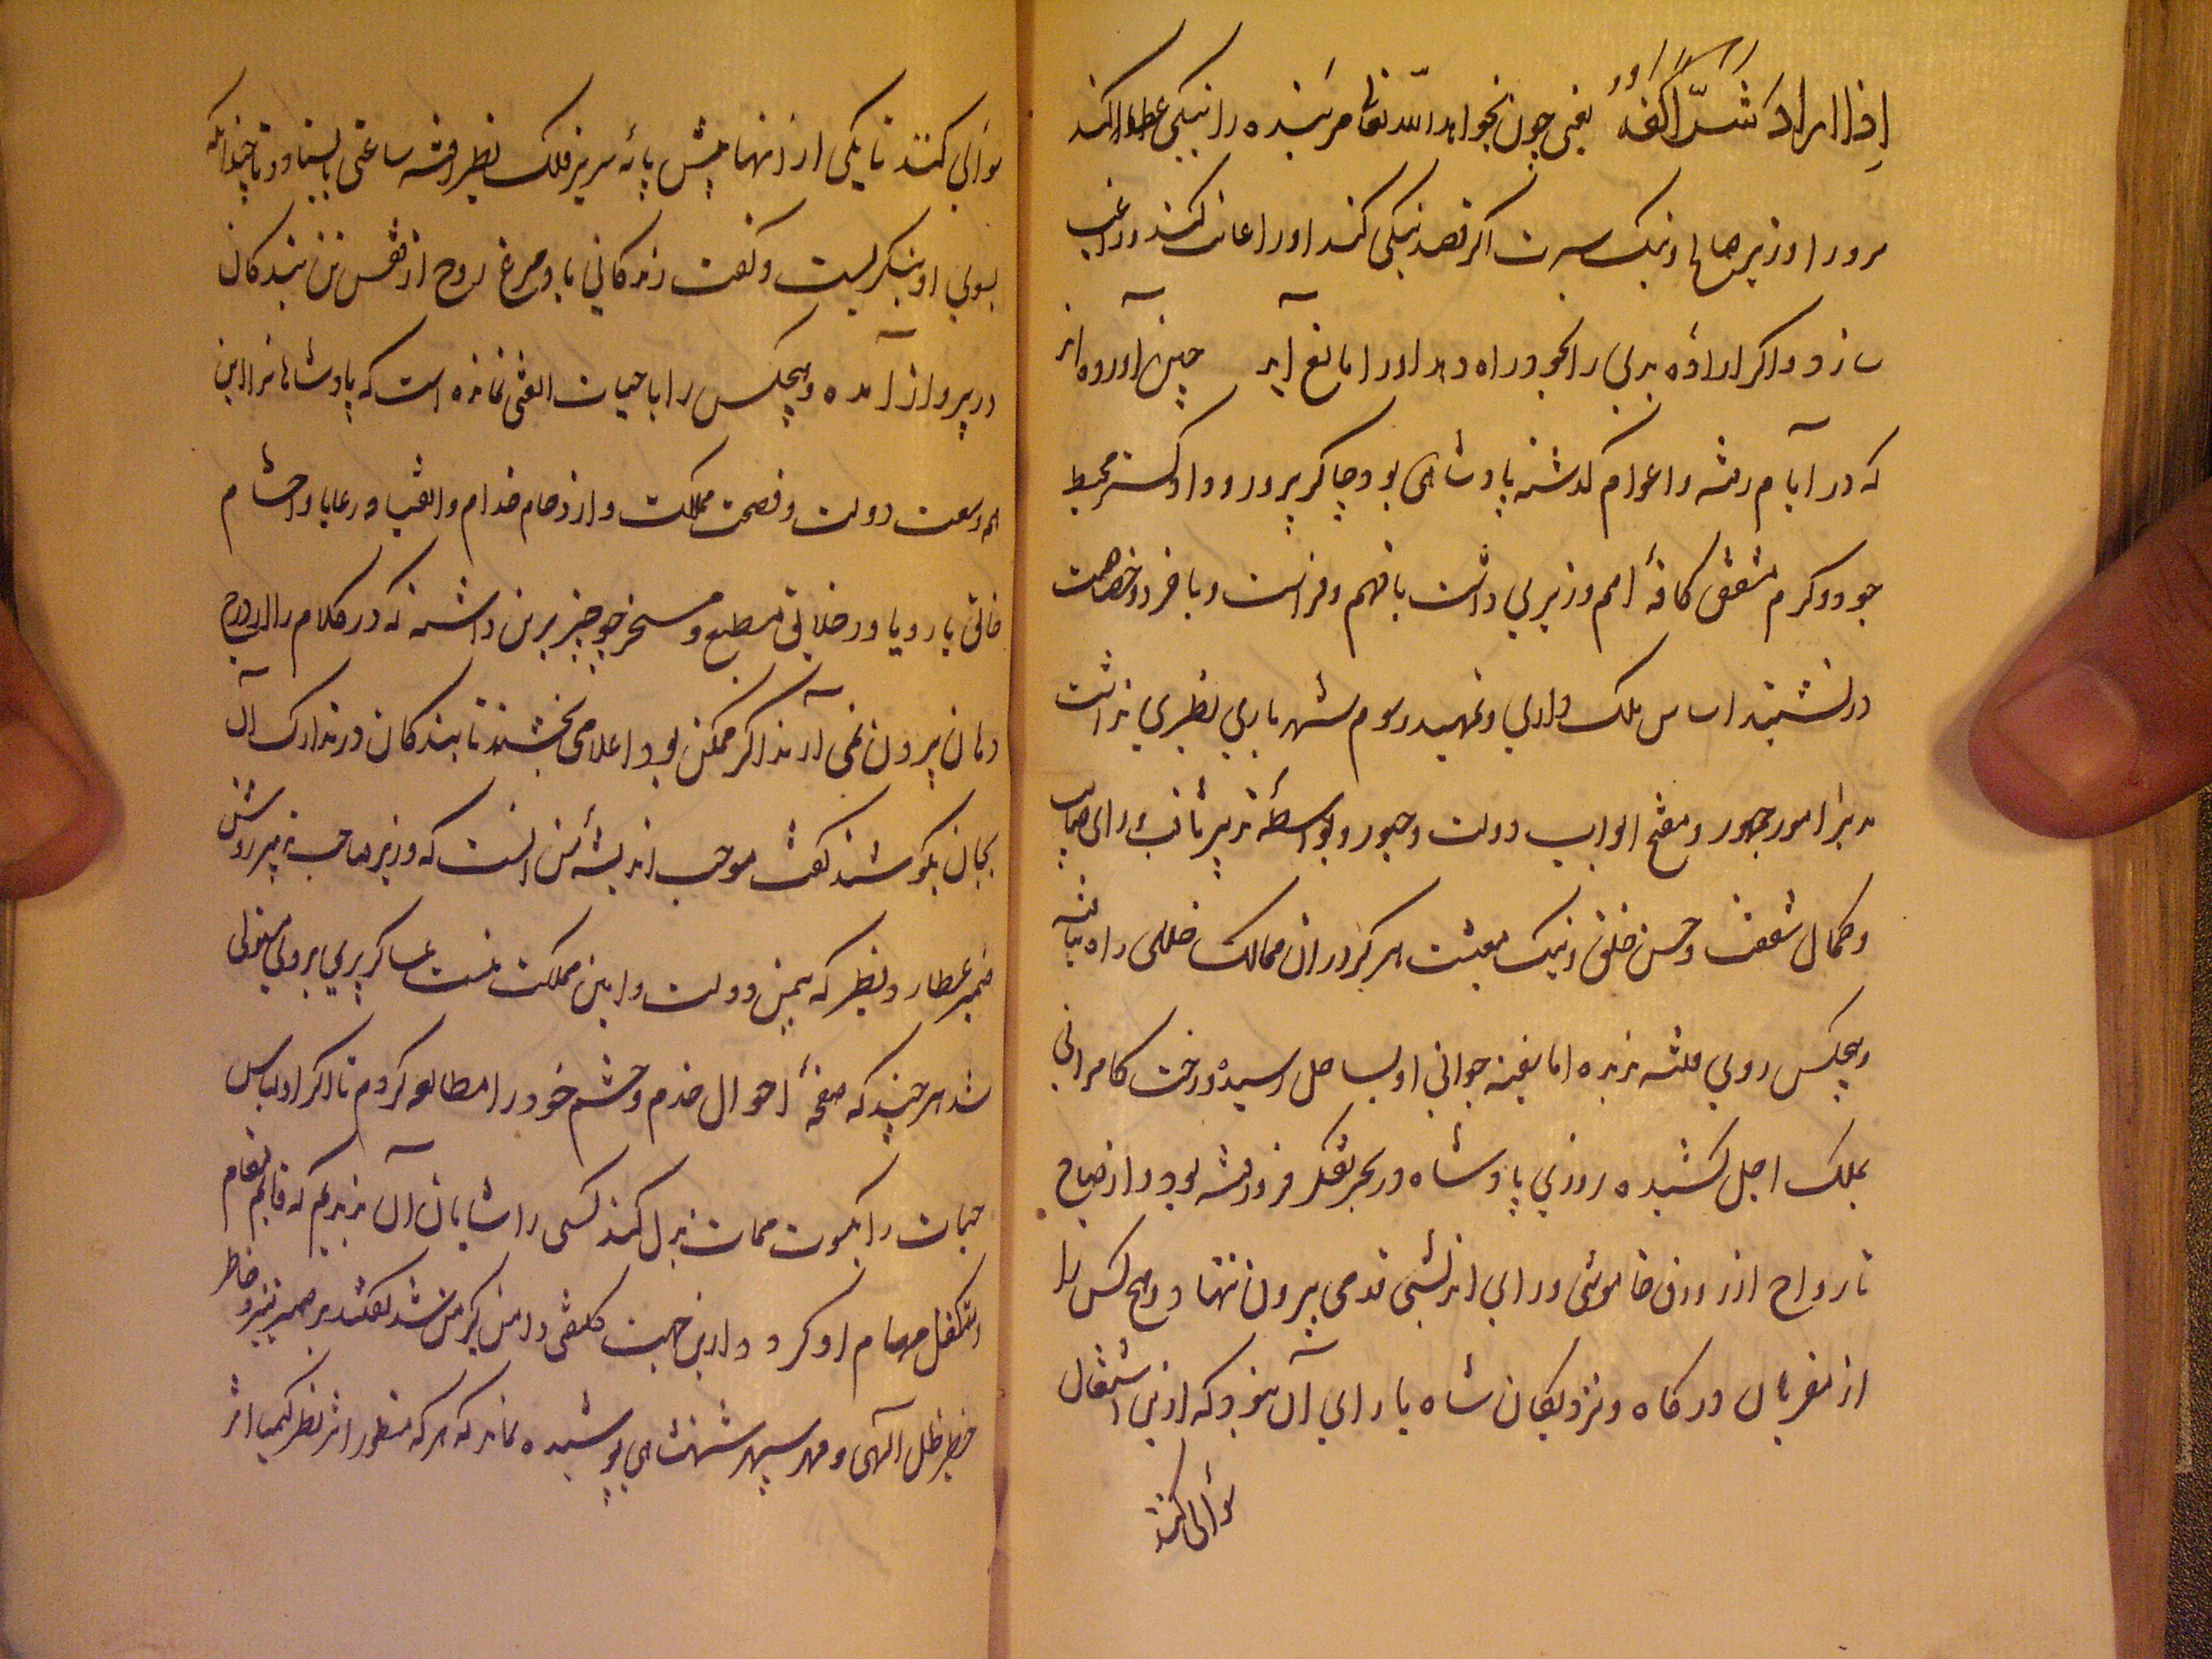 اِذا اَرادَ شَرّاً كَفَّهُ يعنی چون بخواهد اللّه تعالی مر بنده را نیکی عطا کند
مر او را وزیر صالح و نیک سیرت اکر قصد نیکی کند او را اعانت کند و راغب
سازد و اکر اراده بدی را بخود راه دهد او را مانع آید چنین آورده اند
که در ایام رفته و اعوام کذشته پادشاهی بود چاکر پرور و داد کستر محیط
جود و کرم مشفق کافهٔ امم وزیری داشت با فهم و فراست و با خرد و
در تشیید اساس ملک داری و تمهید رسوم شهریاری نظیری نداشت
مدبر امور جمهور و مفتح ابواب دولت و حبور و بواسطهٔ تدبیر ثاقب و رای صایب
و کمال شفقت و حسن خلق و نیک معیشت هر کز در ان ممالک خللی راه نیافته
و هیچکس روی فتنه ندیده اما سفینه جوانی او بساحل رسیده و رخت کامرانی
بملک اجل کشیده روزی پادشاه در بحر تفکر فرو رفته بود و از صباح
تا رواح از زورق خاموشی و رای اندیشی قدمی بیرون ننهاد و هیچ کس را
از مقربان درکاه و نزدیکان شاه یارای آن نبود که ازین اشتغال
سؤالی کنند
سؤالی کنند تا یکی از انها پیش پایهٔ سریر فلک نظیر رفته ساعتی بایستاد و تا چندانکه
بسوی او بنکریست و کفت زندکانی باد مرغ روح از قفس تن بندکان
در پرواز آمده و هیچکس را با حیات الفتی نمانده است که پادشاهانرا این
همه وسعت دولت و فصحت مملکت و ازدحام خدام و اتقیا و رعایا و احشام
فایق با رویا و خلایق مطیع و مسخر چو چیز برین داشته که در کلام را از درج
دهان بیرون نمی آرند اکر ممکن بود اعلامی بخشند تا بندکان در تدارک آن
بجان بکوشند کفت موجب اندیشهٔ من انست که وزیر صاحب تدبیر روشن
ضمیر عطارد نظیر که یمین دولت و امین مملکت منست عساکر پیری بر وی مستولی
شد هر چند که صفحهٔ احوال خدم و حشم خود را مطالعه کردم تا اکر او لباس
حیات را بکسوت ممات بدل کند کسی را شایان آن ندیدم که قایم مقام
و متکفل مهام او کردد و ازین جهت کلفتی دامن کیر من شد کفتند بر ضمیر منیر و خاطر
خطیر ظل آلهی و مهر سپهر شهنشاهی پوشیده نماند که هر که منظور اثر نظر کیمیا اثر